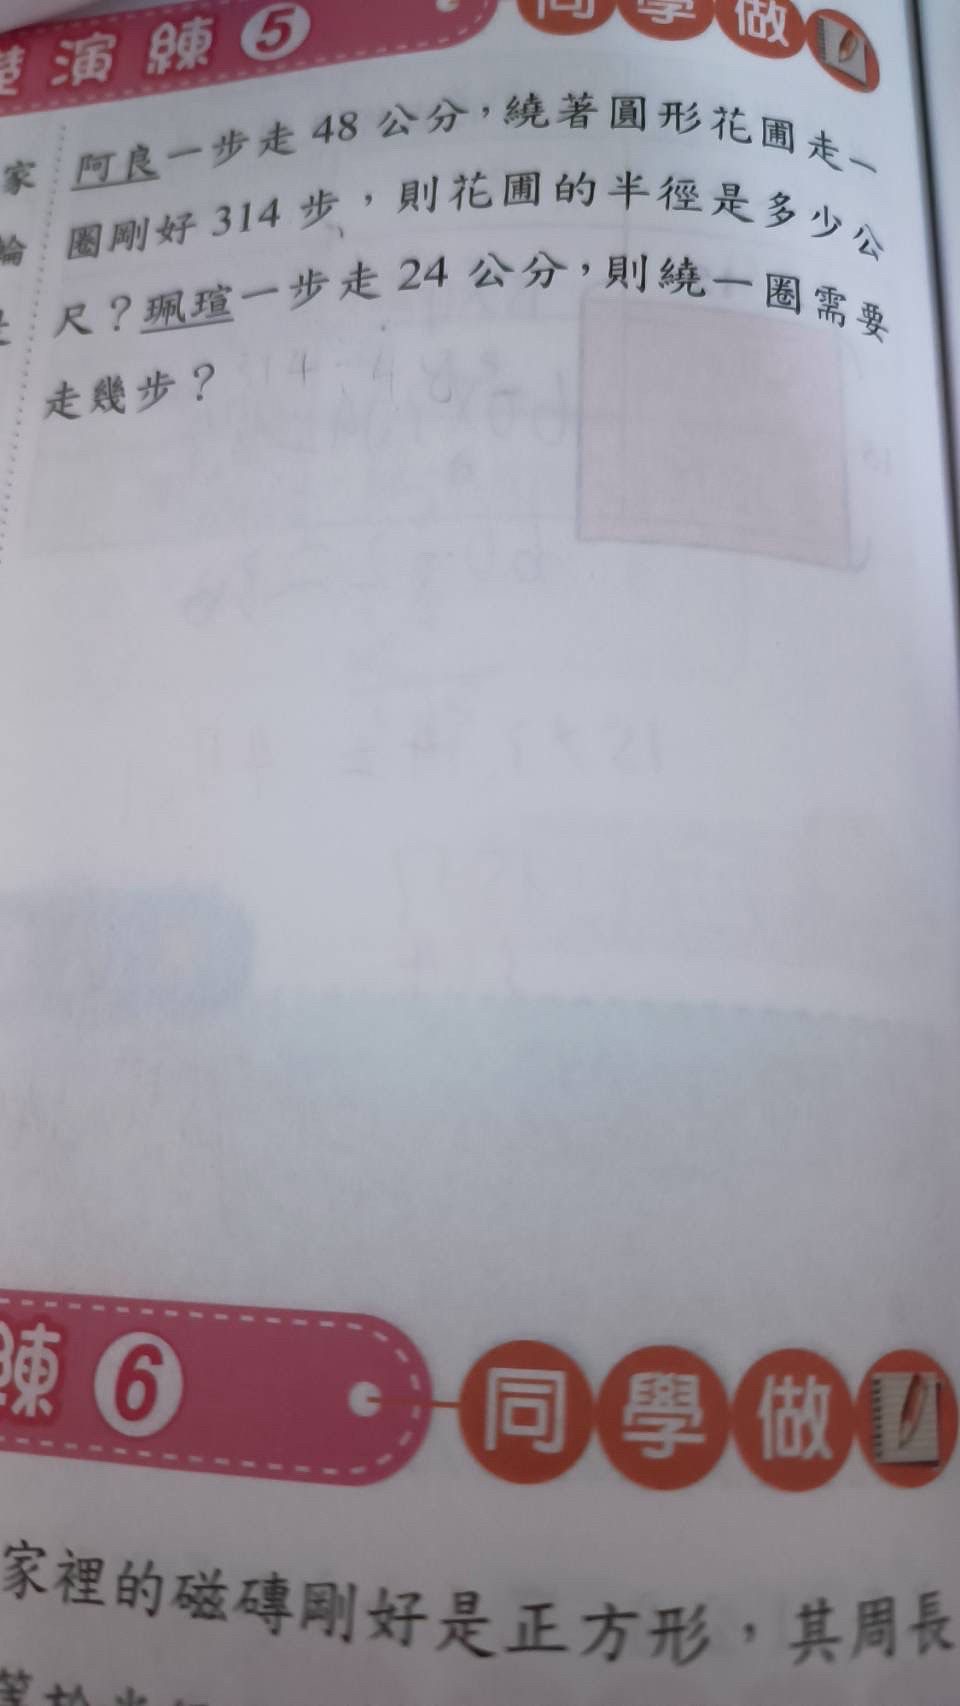 演練5 同學做
阿良一步走48公分，繞著圓形花圃走一
家
圈剛好314步，則花圃的半徑是多少公
輪
尺？珮瑄一步走24公分，則繞一圈需要
走幾步？
練6 同學做
家裡的磁磚剛好是正方形，其周長